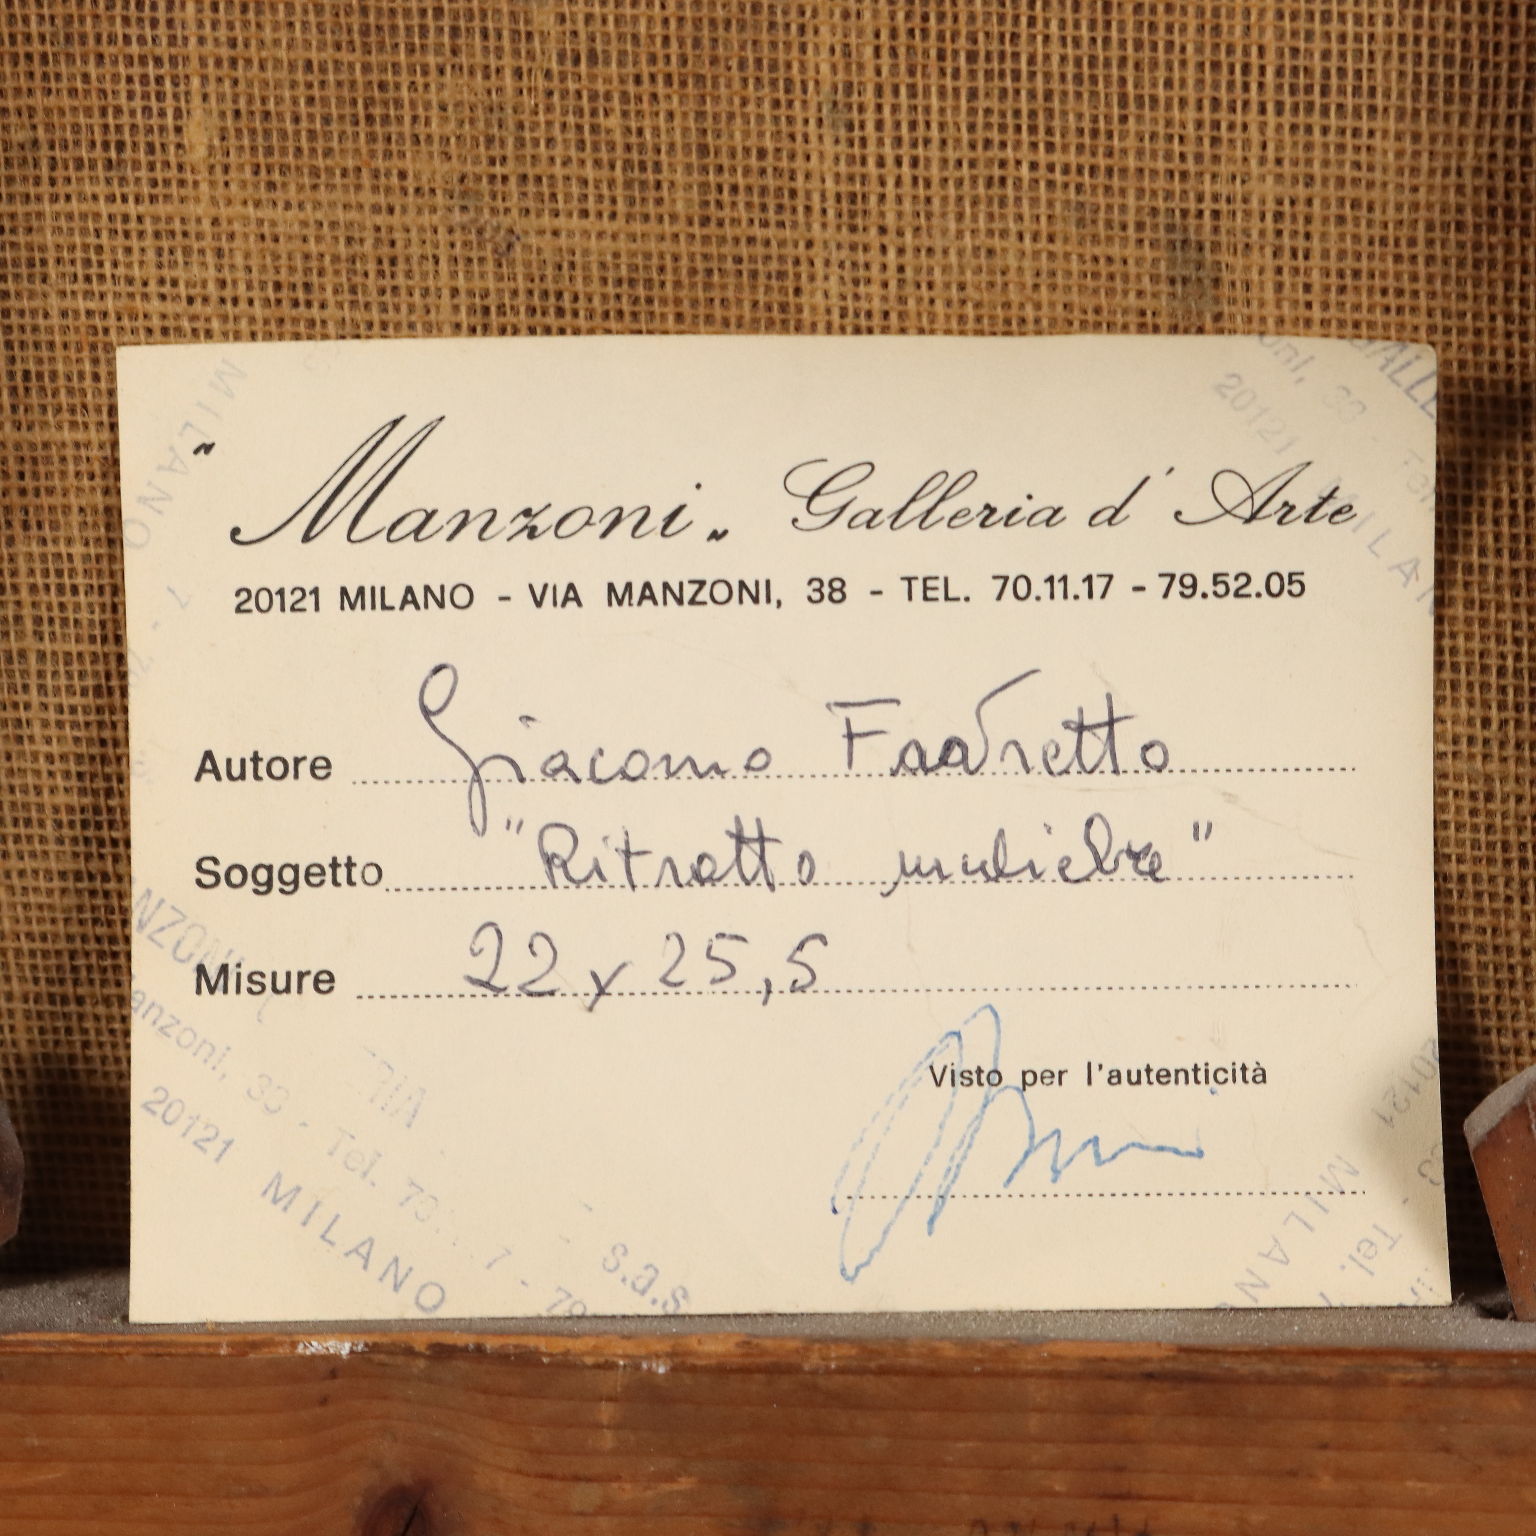 "Manzoni„ Galleria d'Arte
20121 MILANO - VIA MANZONI, 38 - TEL. 70.11.17 - 79.52.05
Autore Giacomo Favretto
Soggetto "Ritratto muliebre"
Misure 22 x 25,5
Visto per l'autenticità
MILANO
20121 MILAN
NZONI
anzoni, 38 - Tel. 70
20121 MILANO
s.a.s
20121
MILAN
Tel.